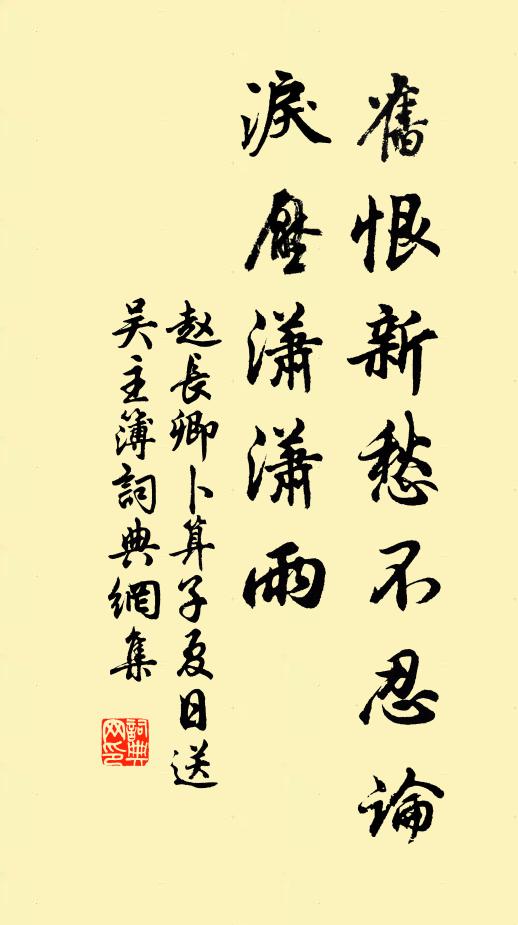 舊恨新愁不忍論
淚壓瀟瀟雨
赵長卿卜算子夏日送
吴主簿詞典網集
詞典
网印